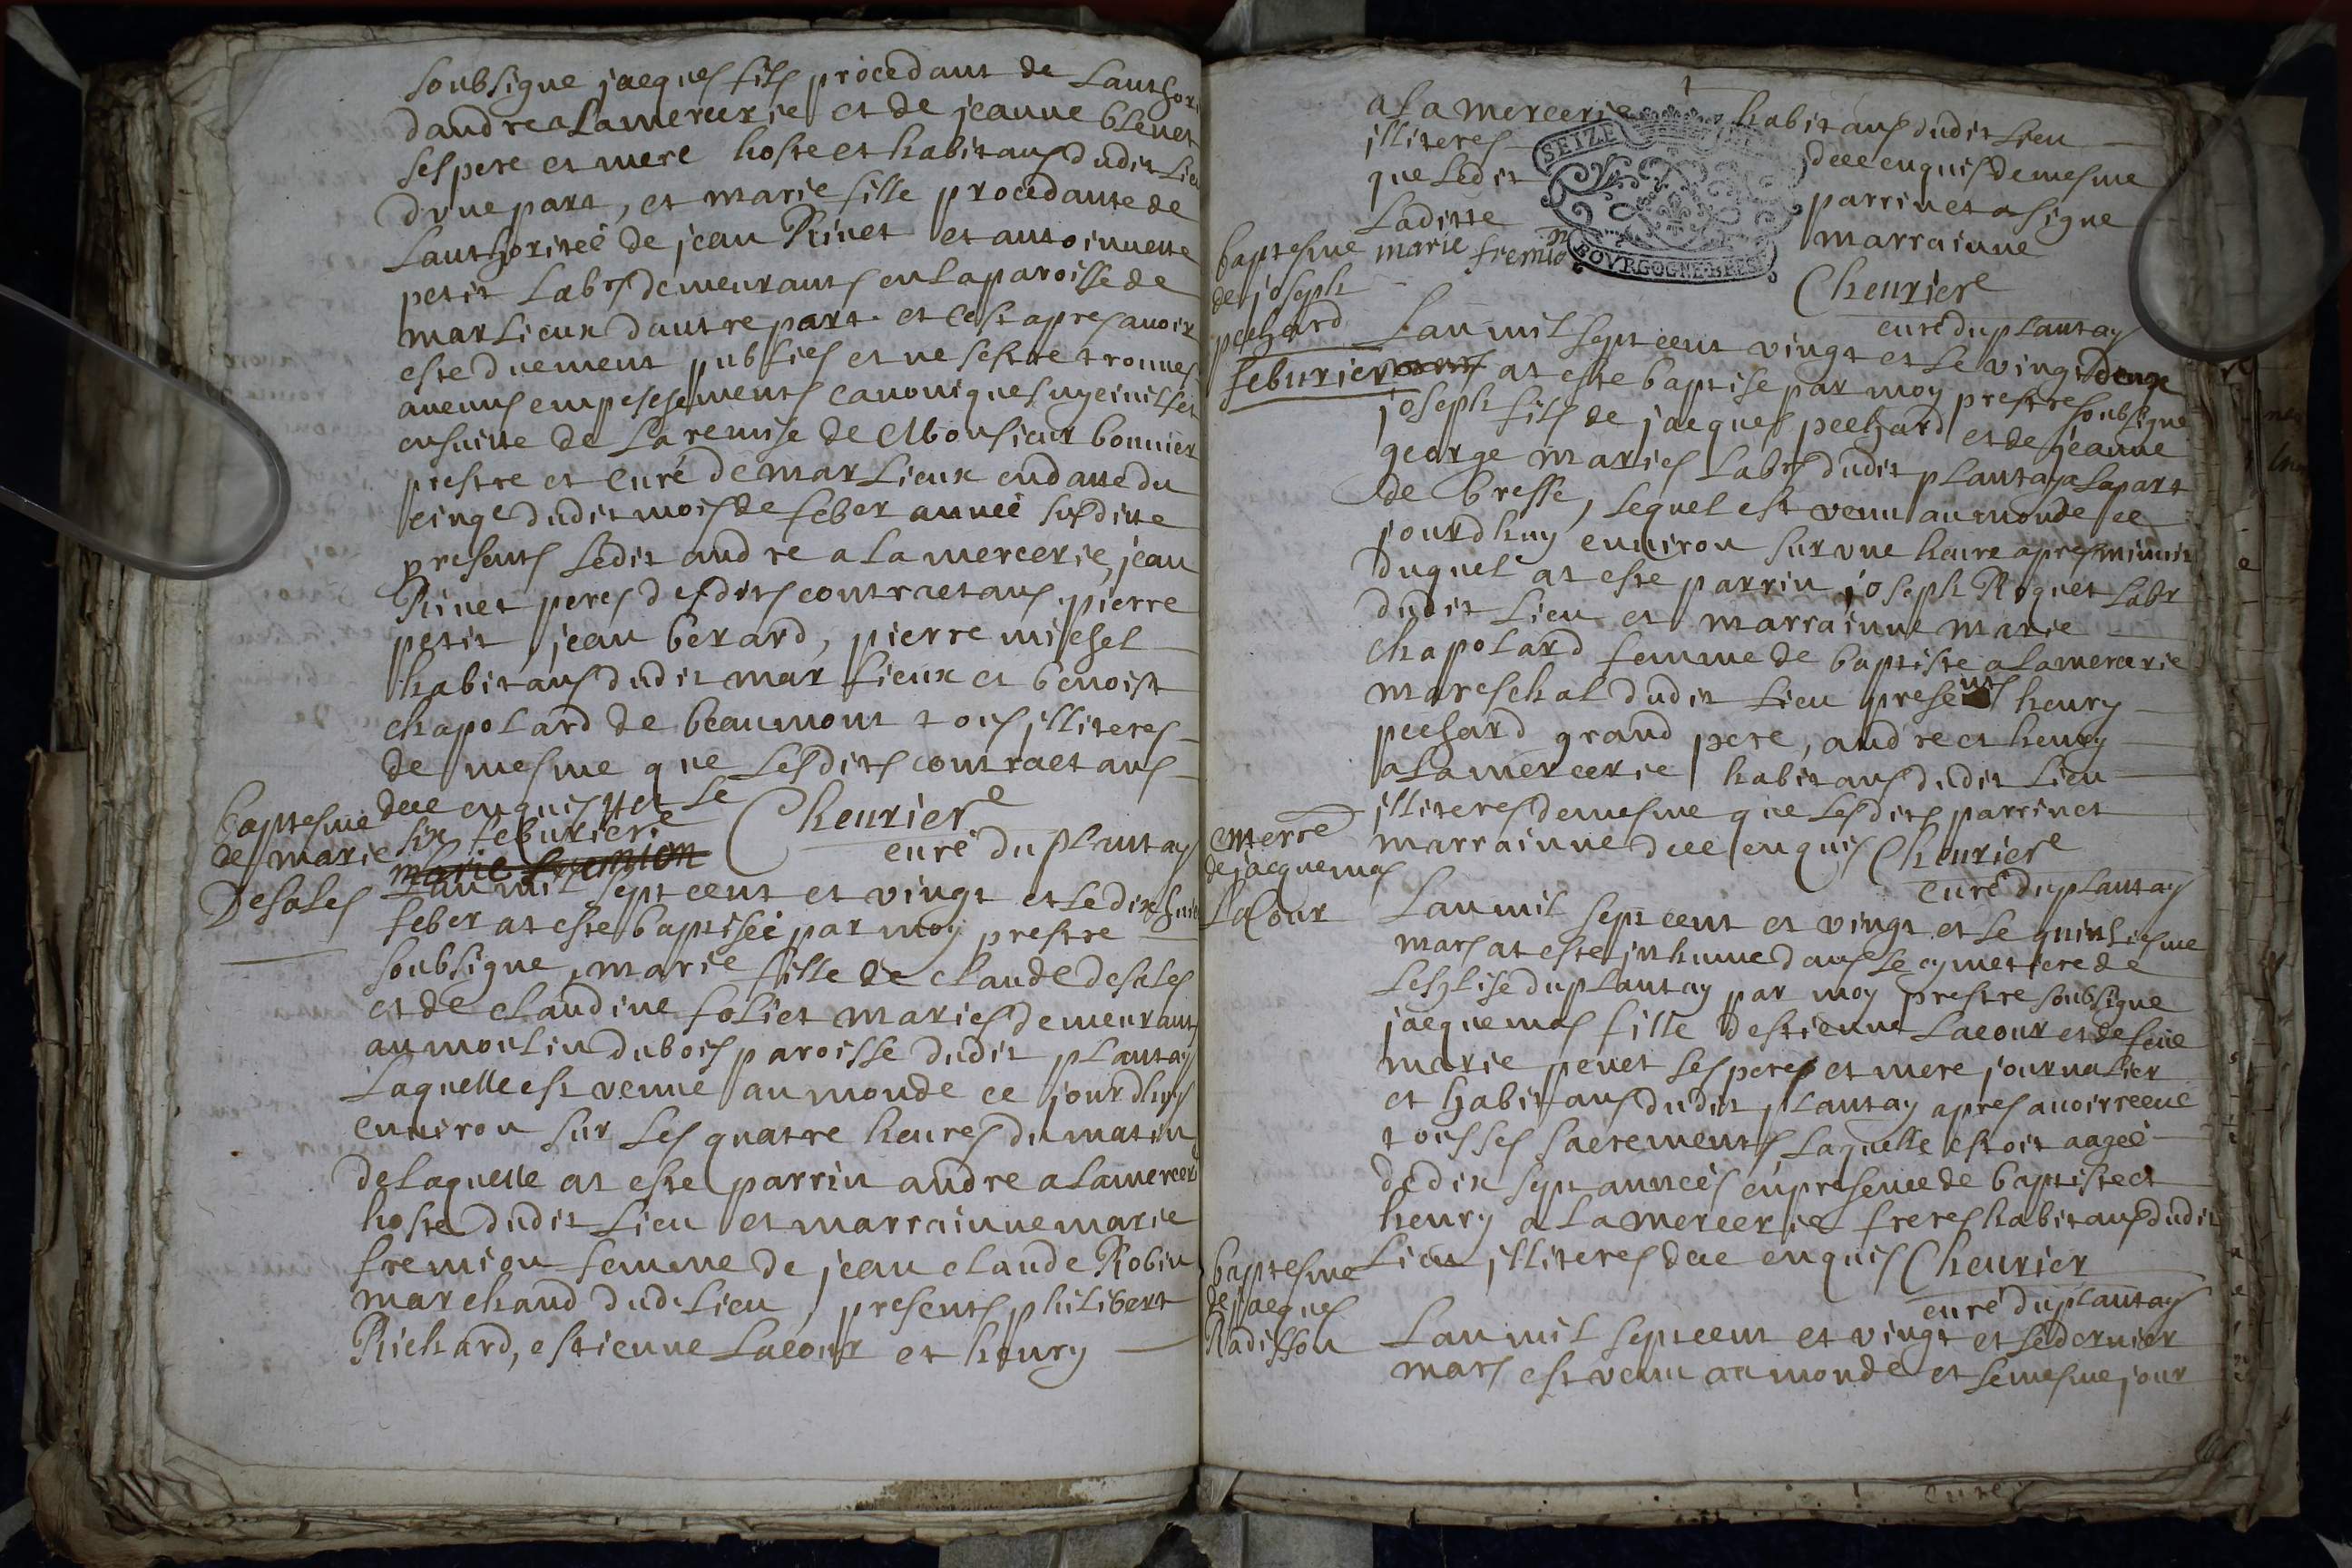 soubsigne jacques fils procedant de Lauthori
dandre aLamercerie et de jeanne blenet
ses pere et mere hoste et habitans dudit Lieu
dvne part, et marie fille procedante de
Lauthoriteé de jean Rivet et antoinnette
petit Labrs demeurants en La paroisse de
marLieux dautre part et cest apres avoir
este duement publies et ne sestre trouves
aucuns empeschements canoniques ny civils et
ensuitte de La remise de Monsieur bonnier
prestre et Curé de marLieux en datte du
cinqe dudit mois de feber anneé susditte
presents Ledit andre a La mercerie, jean
Rivet peres desdits contractans, pierre
petit jean berard, pierre michel
habitans dudit mar Lieux et benoist
chapolard de beaumont tous illiteres
de mesme que Lesdits contractans
deüe enquis et Le
Cheurier
curé du pLantay
baptesme
de marie
Desoles
six feburier
marie fremion
Lan mil sept cent et vingt et Le dix huit
feber at este baptiseé par moy prestre
soubsigne, marie fille de claude desoles
et de claudine foliet maries demeurant
au moulin du bois paroisse dudit pLantay
Laquelle est venue au monde ce jourdhuy
environ sur Les quatre heures du matin
de Laquelle at este parrin andre a Lamercer
hoste dudit Lieu et marrainne marie
fremion femme de jean claude Robin
marchand dud. Lieu, presents philibert
Richard, estienne Lacour et henry
a La mercerie habitans dudit Lieu
illiteres deüe enquis de mesme
que Ledit parrin et a signe
Laditte marrainne
marie fremion
SEIZE
BOVRGOGNE BRES
Cheurier
curé du pLantay
baptesme
de joseph
pechard
feburier
Lan mil sept cent vingt et Le vingt deux
mars at este baptise par moy prestre soubsigne
joseph fils de jacques pechard et de jeanne
george maries Labrs dudit pLantay a La part
de bresse, Lequel est venu au monde ce
jourdhuy environ sur vne heure apres minuit
duquel at este parrin joseph Roquet Labr
dudit Lieu et marrainne marie
chapolard femme de baptiste a Lamercerie
mareschal dudit Lieu presents henry
pechard grand pere, andre et henry
aLamercerie habitans dudit Lieu
illiteres de mesme que Lesdits parrin et
marrainne deüe enquis Cheurier
curé du pLantay
enterre
de jacquemas
LaCour
Lan mil sept cent et vingt et Le quinsiesme
mars at este inhume dans Le cymettiere de
Leglise du pLantay par moy prestre soubsigne
jacquemas fille destienne Lacour et de feüe
marie penet ses peres et mere journalier
et habitans dudit pLantay apres avoir receue
tous ses sacrements Laquelle estoit aageé
de dix sept anneés en presence de baptiste et
henry a La mercerie freres habitans dudit
Lieu illiteres deüe enquis Cheurier
curé du pLantay
baptesme
de jacques
Radisson
Lan mil sept cent et vingt et Le dernier
mars est venu au monde et Le mesme jour